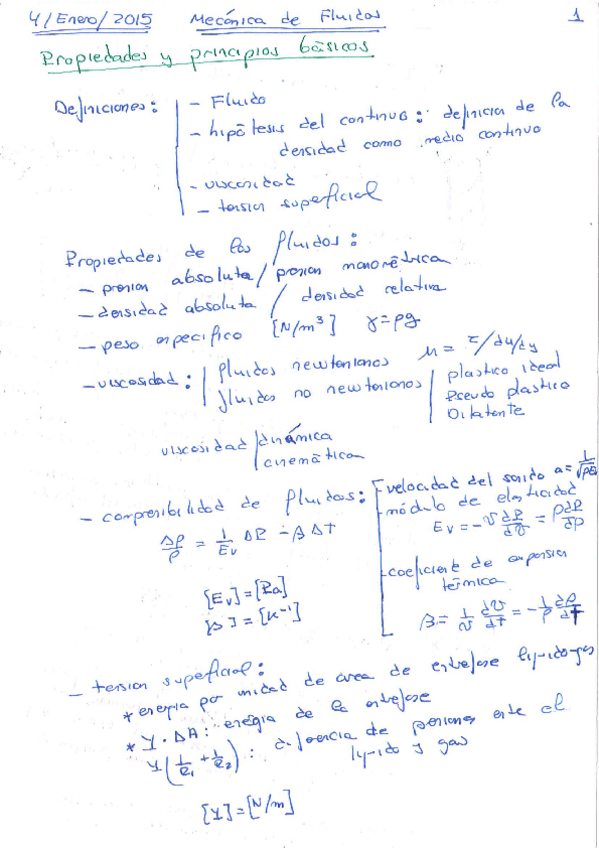 4/Enero/2015 Mecánica de Fluidos 1
Propiedades y principios básicos
Definiciones: - Fluido
- hipótesis del continuo: definición de la
densidad como medio continuo
- viscosidad
- tension superficial
Propiedades de los fluidos:
- presion absoluta / presion manométrica
- densidad absoluta / densidad relativa
- peso especifico [N/m³] γ=ρg
- viscosidad: fluidos newtonianos μ = τ/du/dy
fluidos no newtonianos plastico ideal
Pseudo plastico
Dilatante
viscosidad dinámica
cinemática
- compresibilidad de fluidos: velocidad del sonido a =
- módulo de elasticidad
Δρ/ρ = 1/Ev ΔP - β ΔT
Ev = -v dP/dv = ρ dP/dρ
- coeficiente de expansion
térmica
[Ev] = [Pa]
[β] = [K⁻¹]
β = 1/v dv/dT = -1/ρ dρ/dT
- tension superficial:
* energia por unidad de area de entrefase liquido-gas
* γ · ΔA: energia de la entrefase
γ(1/R₁ + 1/R₂): diferencia de presiones entre el
liquido y gas
[γ] = [N/m]